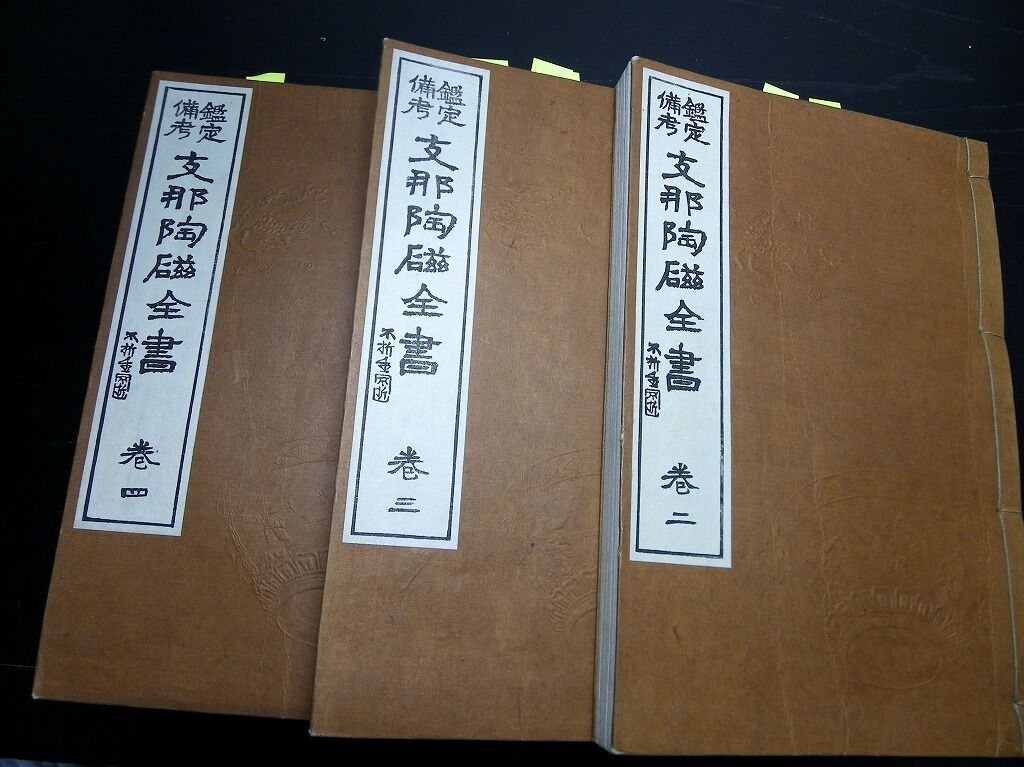 鑑定
備考
支那陶磁全書
不折
卷
鑑定
備考
支那陶磁全書
不折
卷三
鑑定
備考
支那陶磁全書
不折
卷二